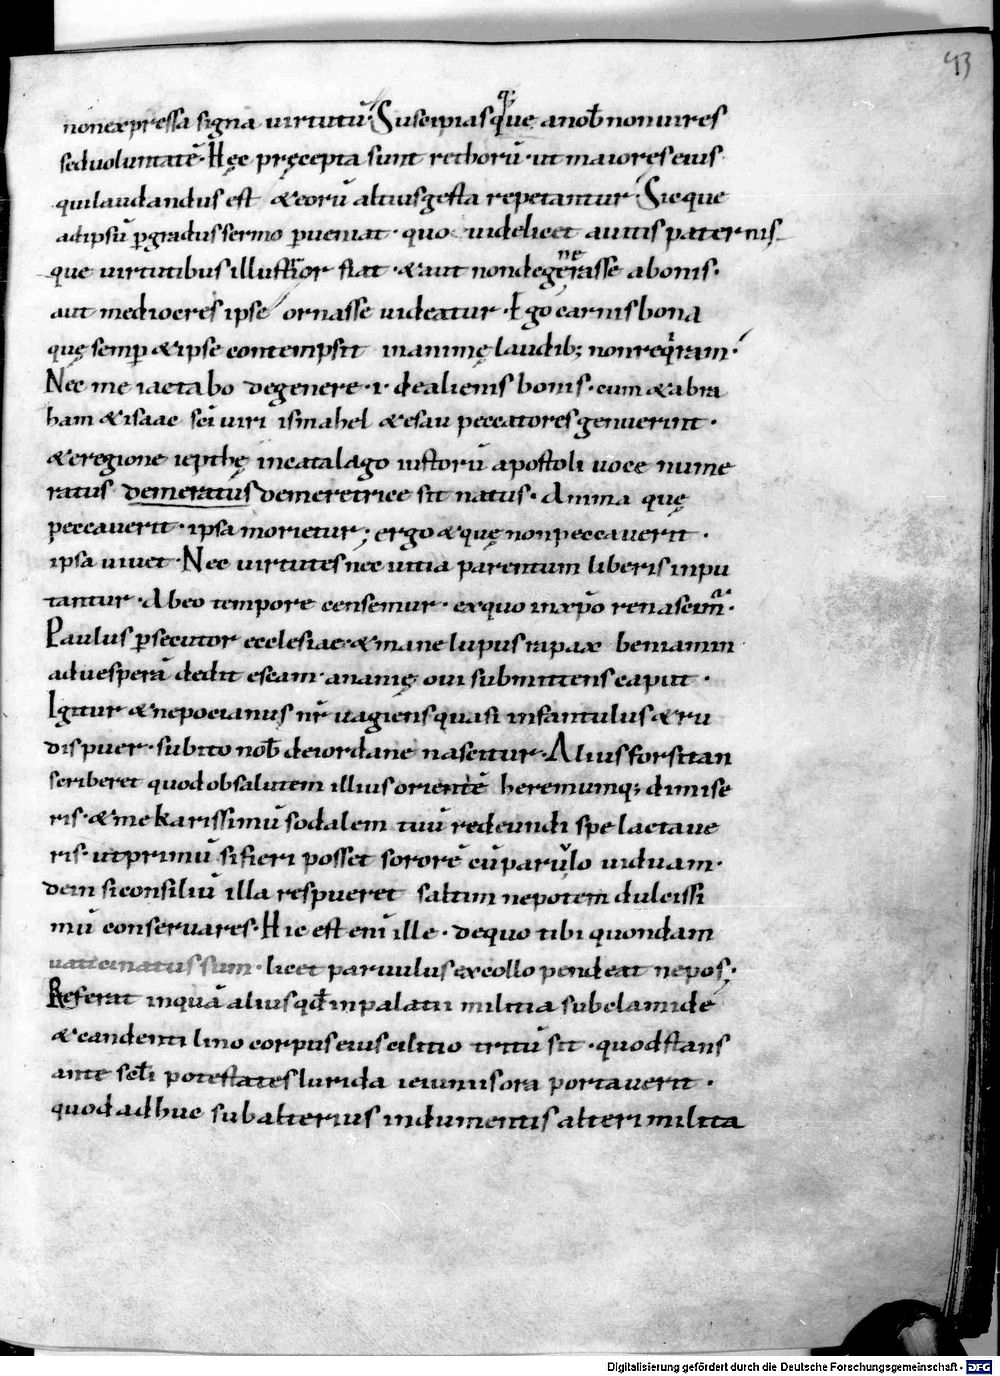 43
non expressa signa virtutū· Suscipias q͛ue a nob̄ non uires
sed voluntatē· Hęc pręcepta sunt rethorū· ut maiores eius
qui laudandus est & eorū altius gesta repetantur· Sicque
ad ipsū ꝑ gradus sermo ꝑueniat· quo uidelicet auitis paternis
que uirtutibus illustrior fiat· & aut non degenerasse a bonis·
aut mediocres ipse ornasse uideatur· Ego carnis bona
quę semꝑ & ipse contempsit in animę laudib; non reqͥram·
Nec me iactabo de genere· i· de alienis bonis· cum & abra
ham & isaac sc̄i uiri ismahel & esau peccatores genuerint·
& e regione iepthę in catalago iustorū apostoli uoce nume
ratus demeratus de meretrice sit natus· Anima quę
peccauerit· ipsa morietur; ergo & quę non peccauerit·
ipsa uiuet· Nec uirtutes nec uitia parentum liberis inpu
tantur· Ab eo tempore censemur· ex quo in xp̄o renascim̄·
Paulus ꝑsecutor ecclesiae· & mane lupus rapax beniamin
ad uesperā dedit escam· ananię oui submittens caput·
Igitur & nepocianus nr̄ uagiens quasi infantulus & ru
dis puer· subito nob̄ de iordane nascitur· Alius forsitan
scriberet quod ob salutem illius orientē heremumq; dimise
ris· & me karissimū sodalem tuū redeundi spe lactaue
ris· ut primū si fieri posset sororē cū paruulo uiduam·
dein si consiliū illa respueret saltim nepotem dulcissi
mū conseruares· Hic est eni ille· de quo tibi quondam
uaticinatus sum· licet paruulus ex collo pendeat nepos;
Referat inquā alius qd̄ in palatii militia sub clamide
& candenti lino corpus eius cilitio tritū sit· quod stans
ante scl̄i potestates lurida ieiuniis ora portauerit·
quod adhuc sub alterius indumentis alteri milita
Digitalisierung gefördert durch die Deutsche Forschungsgemeinschaft - DFG